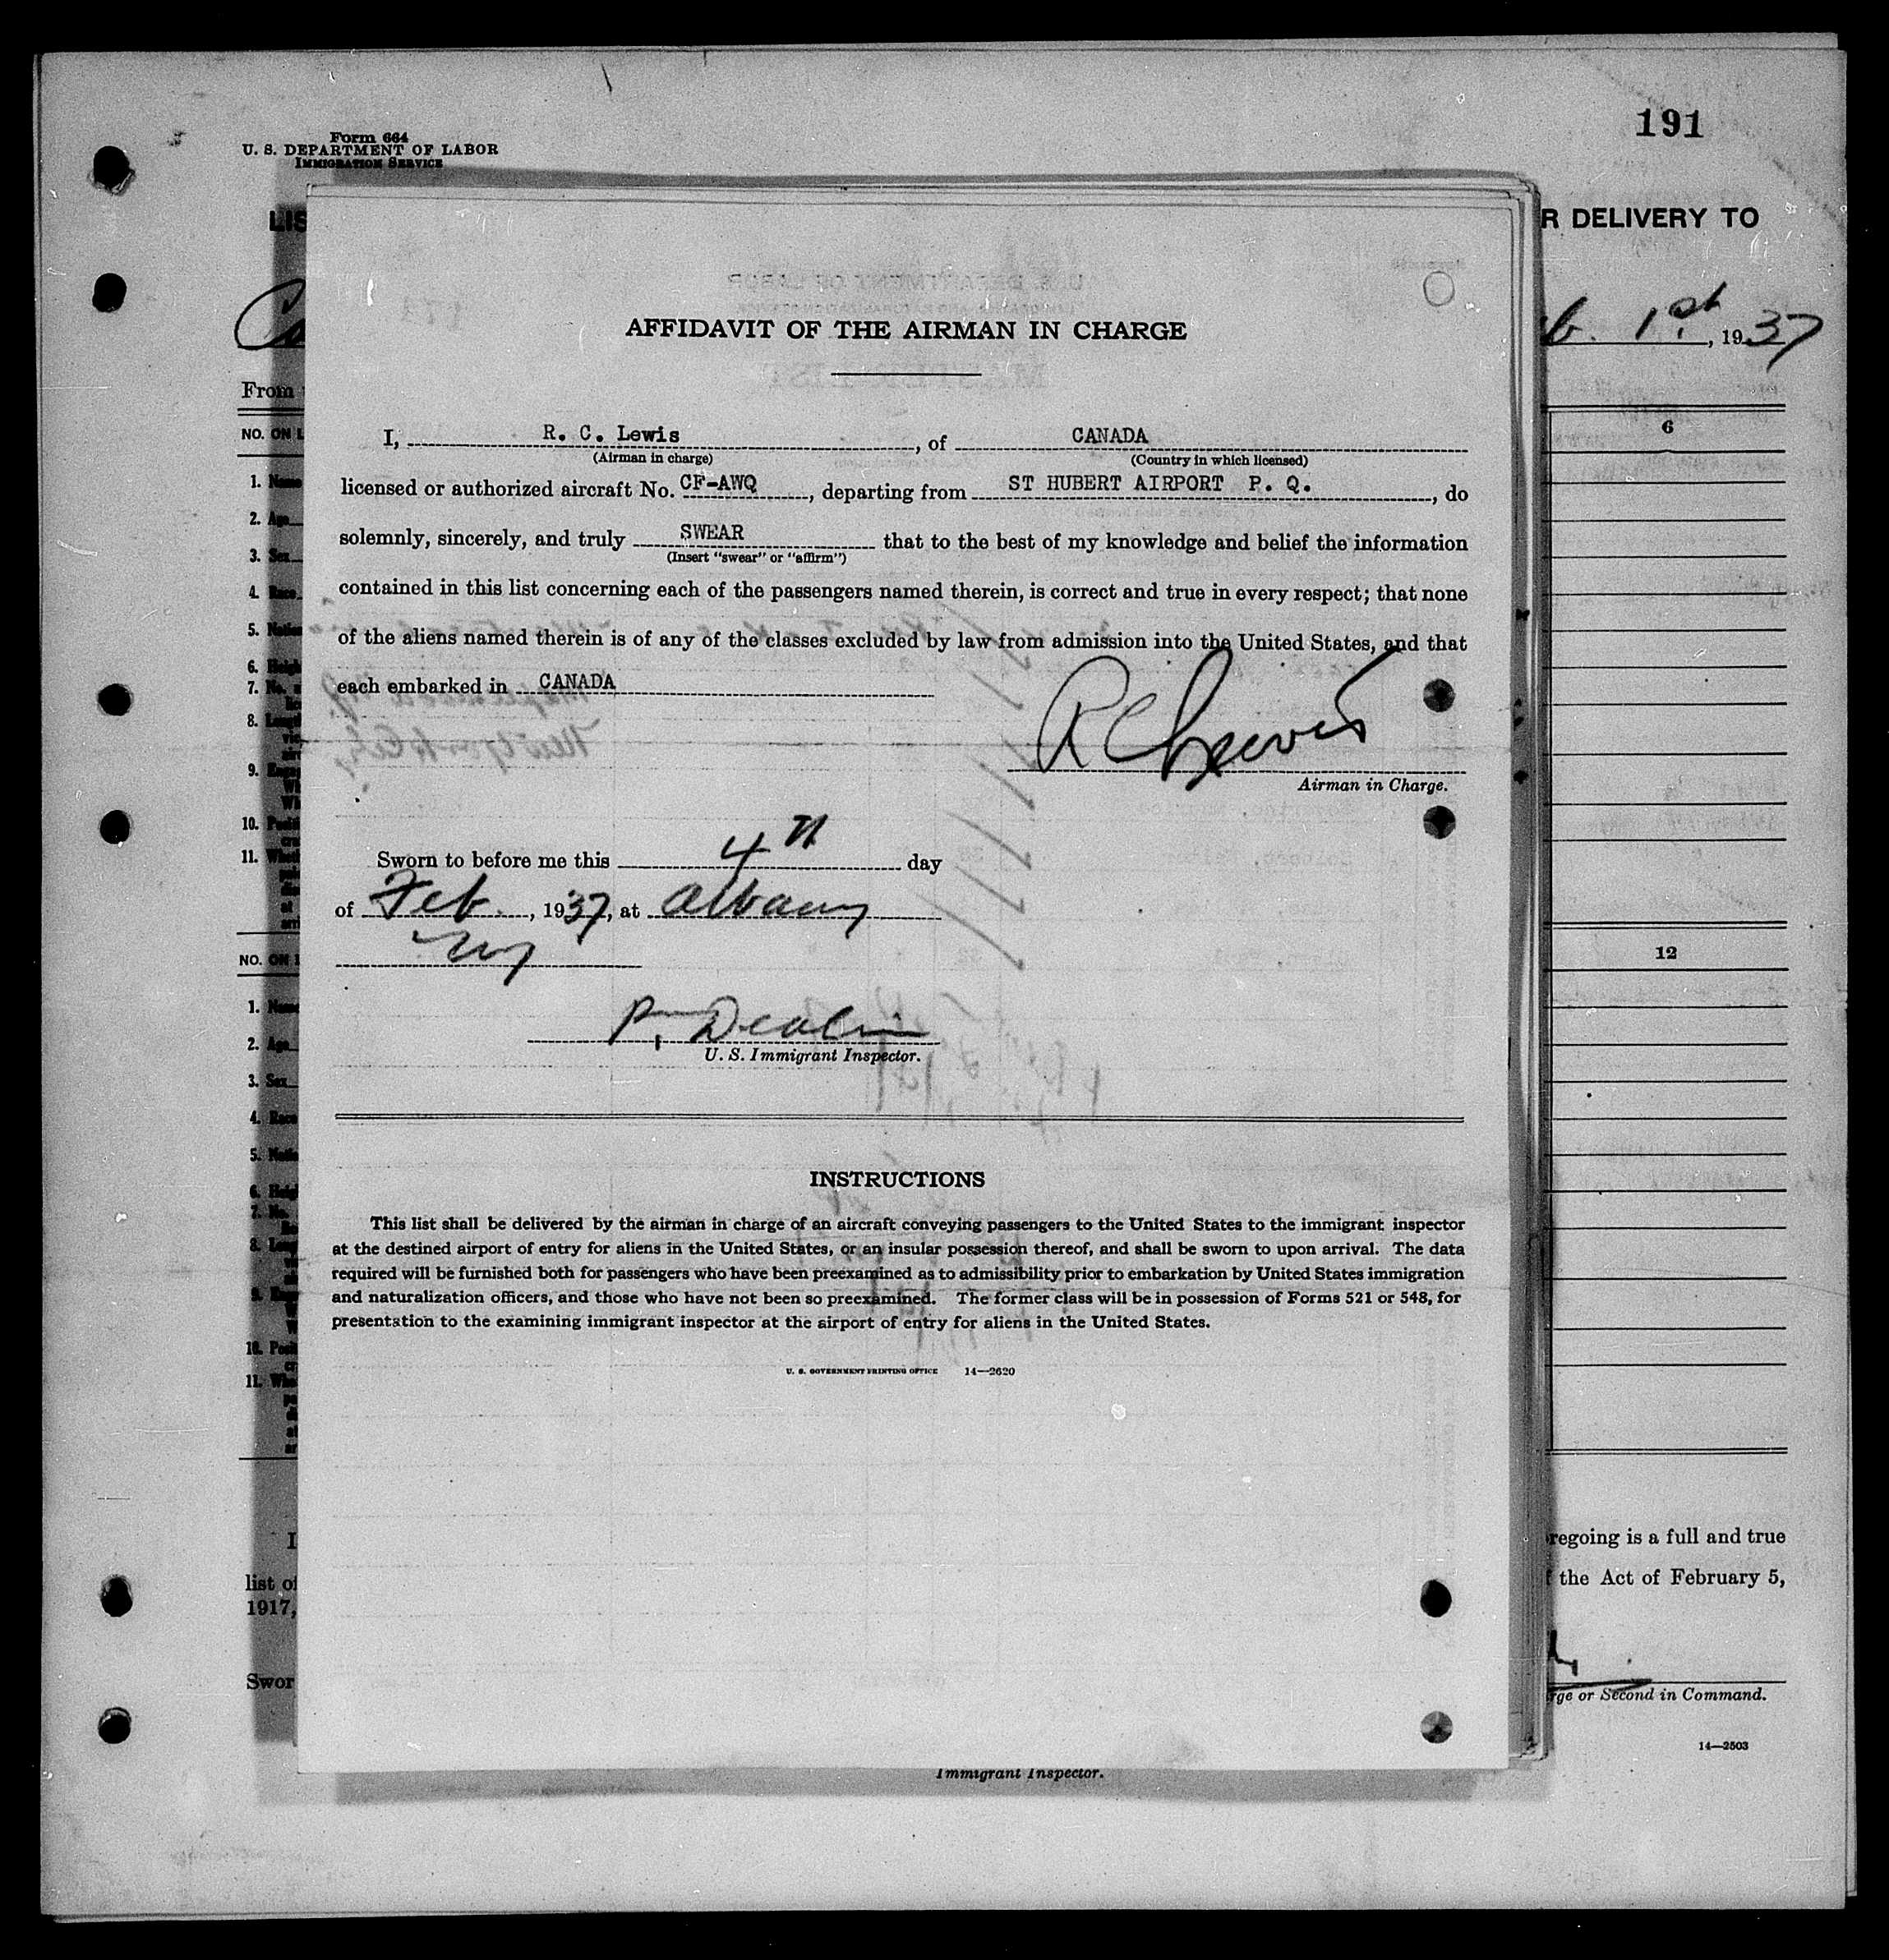 191
Form 664
U. S. DEPARTMENT OF LABOR
IMMIGRATION SERVICE
LIS
R DELIVERY TO
1st, 1937
From
NO. ON L
6
1. Name
2. Age
3. Sex
4. Race
5. Nation
6. Heigh
7. No.
8.
9.
10.
11.
NO. ON
12
1. Name
2. Age
3. Sex
4. Race
5. Natio
6. Heigh
7. No.
8.
9.
10. Posi
11. Whe
I
regoing is a full and true
list of
the Act of February 5,
1917,
Swor
rge or Second in Command.
14—2503
Immigrant Inspector.
AFFIDAVIT OF THE AIRMAN IN CHARGE
I, R. C. Lewis, of CANADA
(Airman in charge) (Country in which licensed)
licensed or authorized aircraft No. CF-AWQ, departing from ST HUBERT AIRPORT P. Q., do
solemnly, sincerely, and truly SWEAR that to the best of my knowledge and belief the information
(Insert "swear" or "affirm")
contained in this list concerning each of the passengers named therein, is correct and true in every respect; that none
of the aliens named therein is of any of the classes excluded by law from admission into the United States, and that
each embarked in CANADA
R C Lewis
Airman in Charge.
Sworn to before me this 4th day
of Feb., 1937, at Albany
NY
U. S. Immigrant Inspector.
INSTRUCTIONS
This list shall be delivered by the airman in charge of an aircraft conveying passengers to the United States to the immigrant inspector
at the destined airport of entry for aliens in the United States, or an insular possession thereof, and shall be sworn to upon arrival. The data
required will be furnished both for passengers who have been preexamined as to admissibility prior to embarkation by United States immigration
and naturalization officers, and those who have not been so preexamined. The former class will be in possession of Forms 521 or 548, for
presentation to the examining immigrant inspector at the airport of entry for aliens in the United States.
U. S. GOVERNMENT PRINTING OFFICE 14—2620